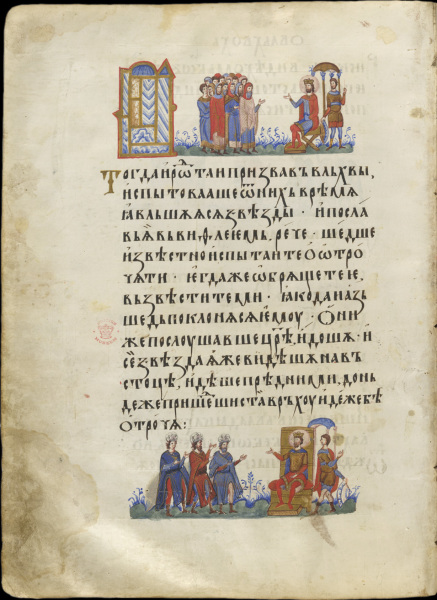 Тогда ирѡ҃ таи призвавъ влъхвы,
испытоваaше ѿ нихъ врѣмѧ
ꙗвльшѧѧсѧ звѣзды · и посла
рече · шедше
извѣстно испытаите ѻ ѻтро
чѧти · и егдаже ѻбрѧщете и,
възвѣстите ми · ꙗко да и азь
шедь поклонѧсѧ емоу · ѻни
же послоушавше цр҃ѣ, идошѧ · и
се звѣзда ѧже видѣшѧ на въ
стоцѣ, идѣше прѣд ними, донь
деже пришеⷣши ста връхоу идеже бѣ
ѻтрочѧ :